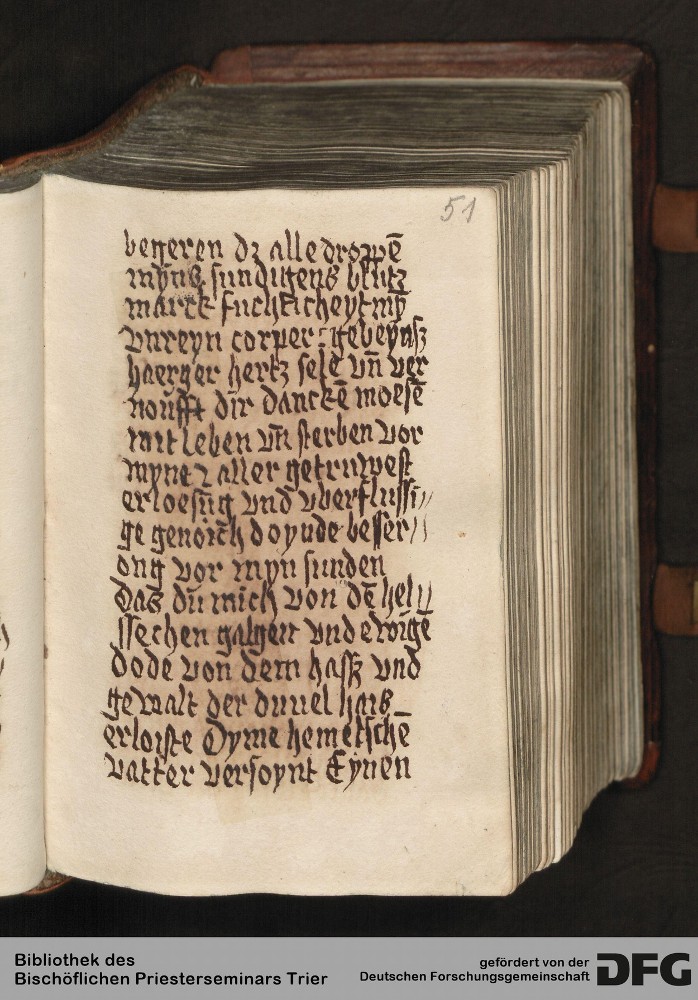 51
begeren dz alle droppē
myns sundigens blutz
marck fuchticheyt mȳ
vnreyn corper gebeynß
haer hertz sele vn̄ ver
noufft dir danckē moesē
mit leben vn̄ sterben vor
myne aller getruwest
erloesūg vnd vberflussi//
ge genoich doynde besser//
ong vor myn sunden
Das du mich von dē hel//
ssechen galgen vnd ewigē
dode von dem hassz vnd
gewalt der duuel hais
erloiste Dyme hemelschē
vatter versoynt Eynen
Bibliothek des
Bischöflichen Priesterseminars Trier
gefördert von der
Deutschen Forschungsgemeinschaft
DFG